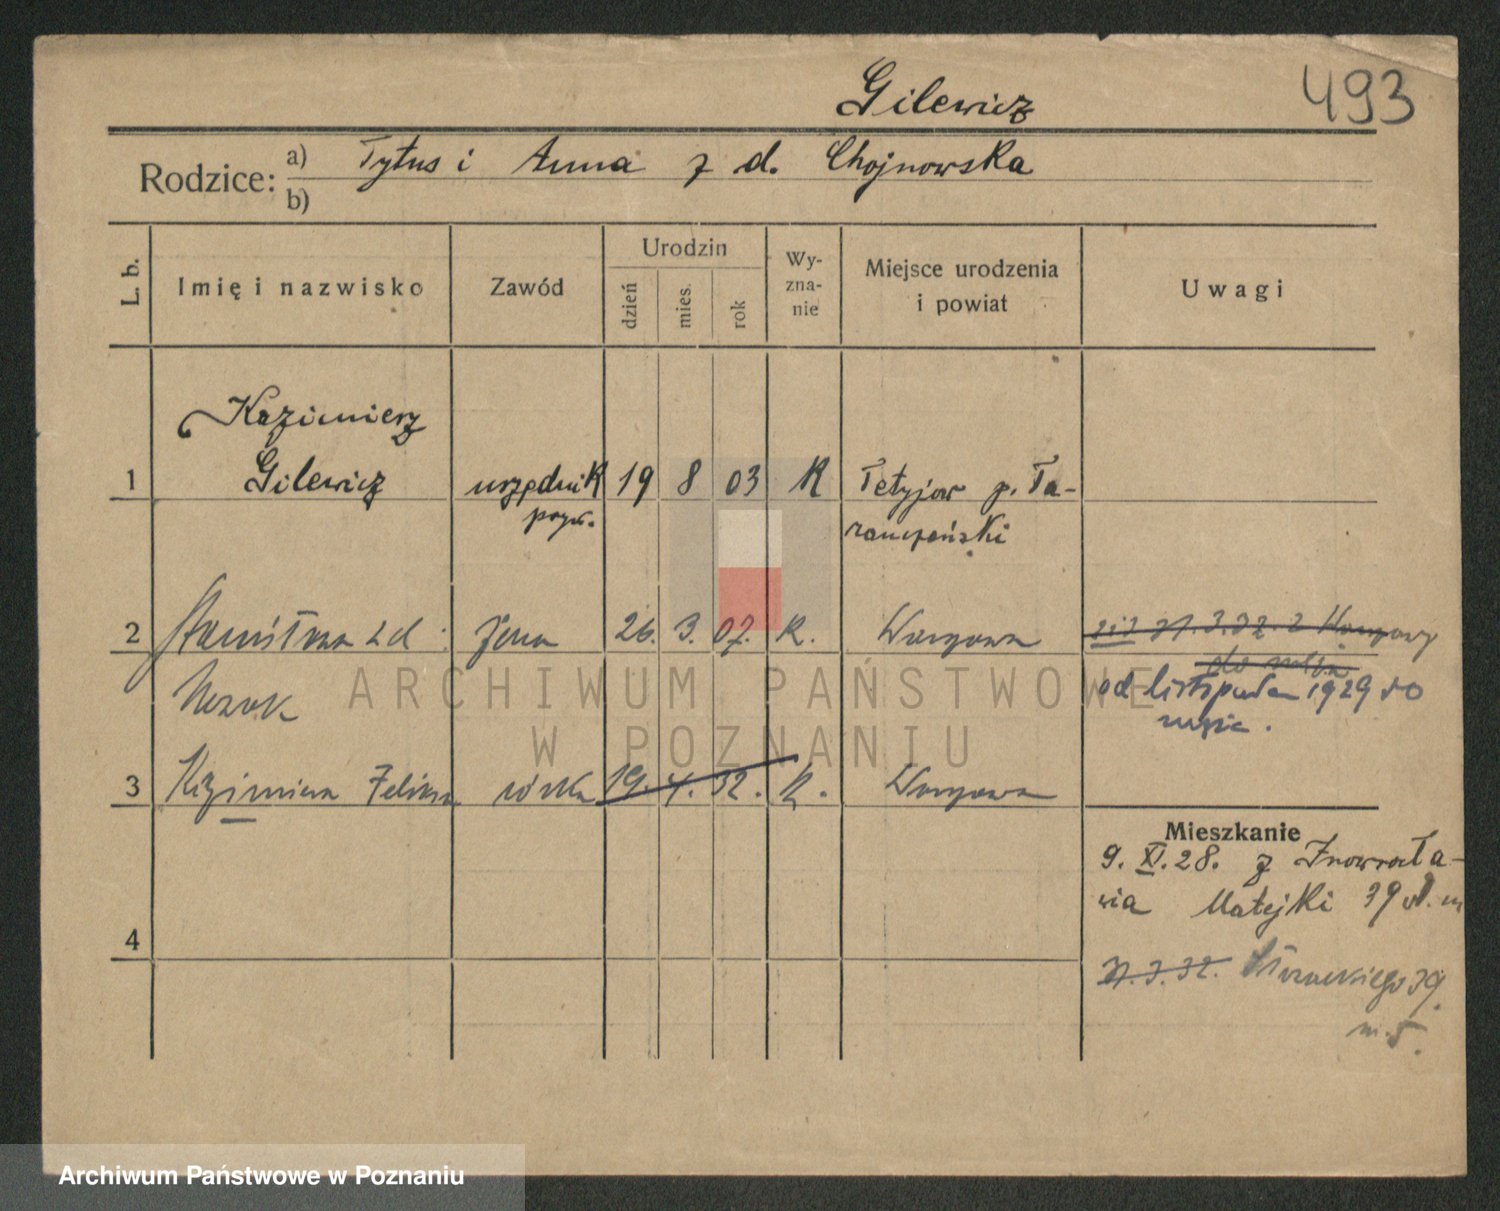 Gilewicz 493
Rodzice: a) Tytus i Anna z d. Chojnowska
b)
L. b. Imię i nazwisko Zawód Urodzin dzień mies. rok Wyznanie Miejsce urodzenia i powiat Uwagi
Kazimierz
1 Gilewicz urzędnik 19 8 03 R Tetyjow p. Ta-
pryw. raszczański
2 Stanisława zd: żona 26. 3. 07. R. Warszawa 31.3.32. z Warszawy
do męża
Nezak od listopada 1929 do
męża.
3 Kazimiera Feliksa córka 19. 4. 32. R. Warszawa
Mieszkanie
9. XI. 28. z Inowrocła-
wia Matejki 39
4
31.3.32. Słowackiego 39.
m. 5.
ARCHIWUM PAŃSTWOWE
W POZNANIU
Archiwum Państwowe w Poznaniu